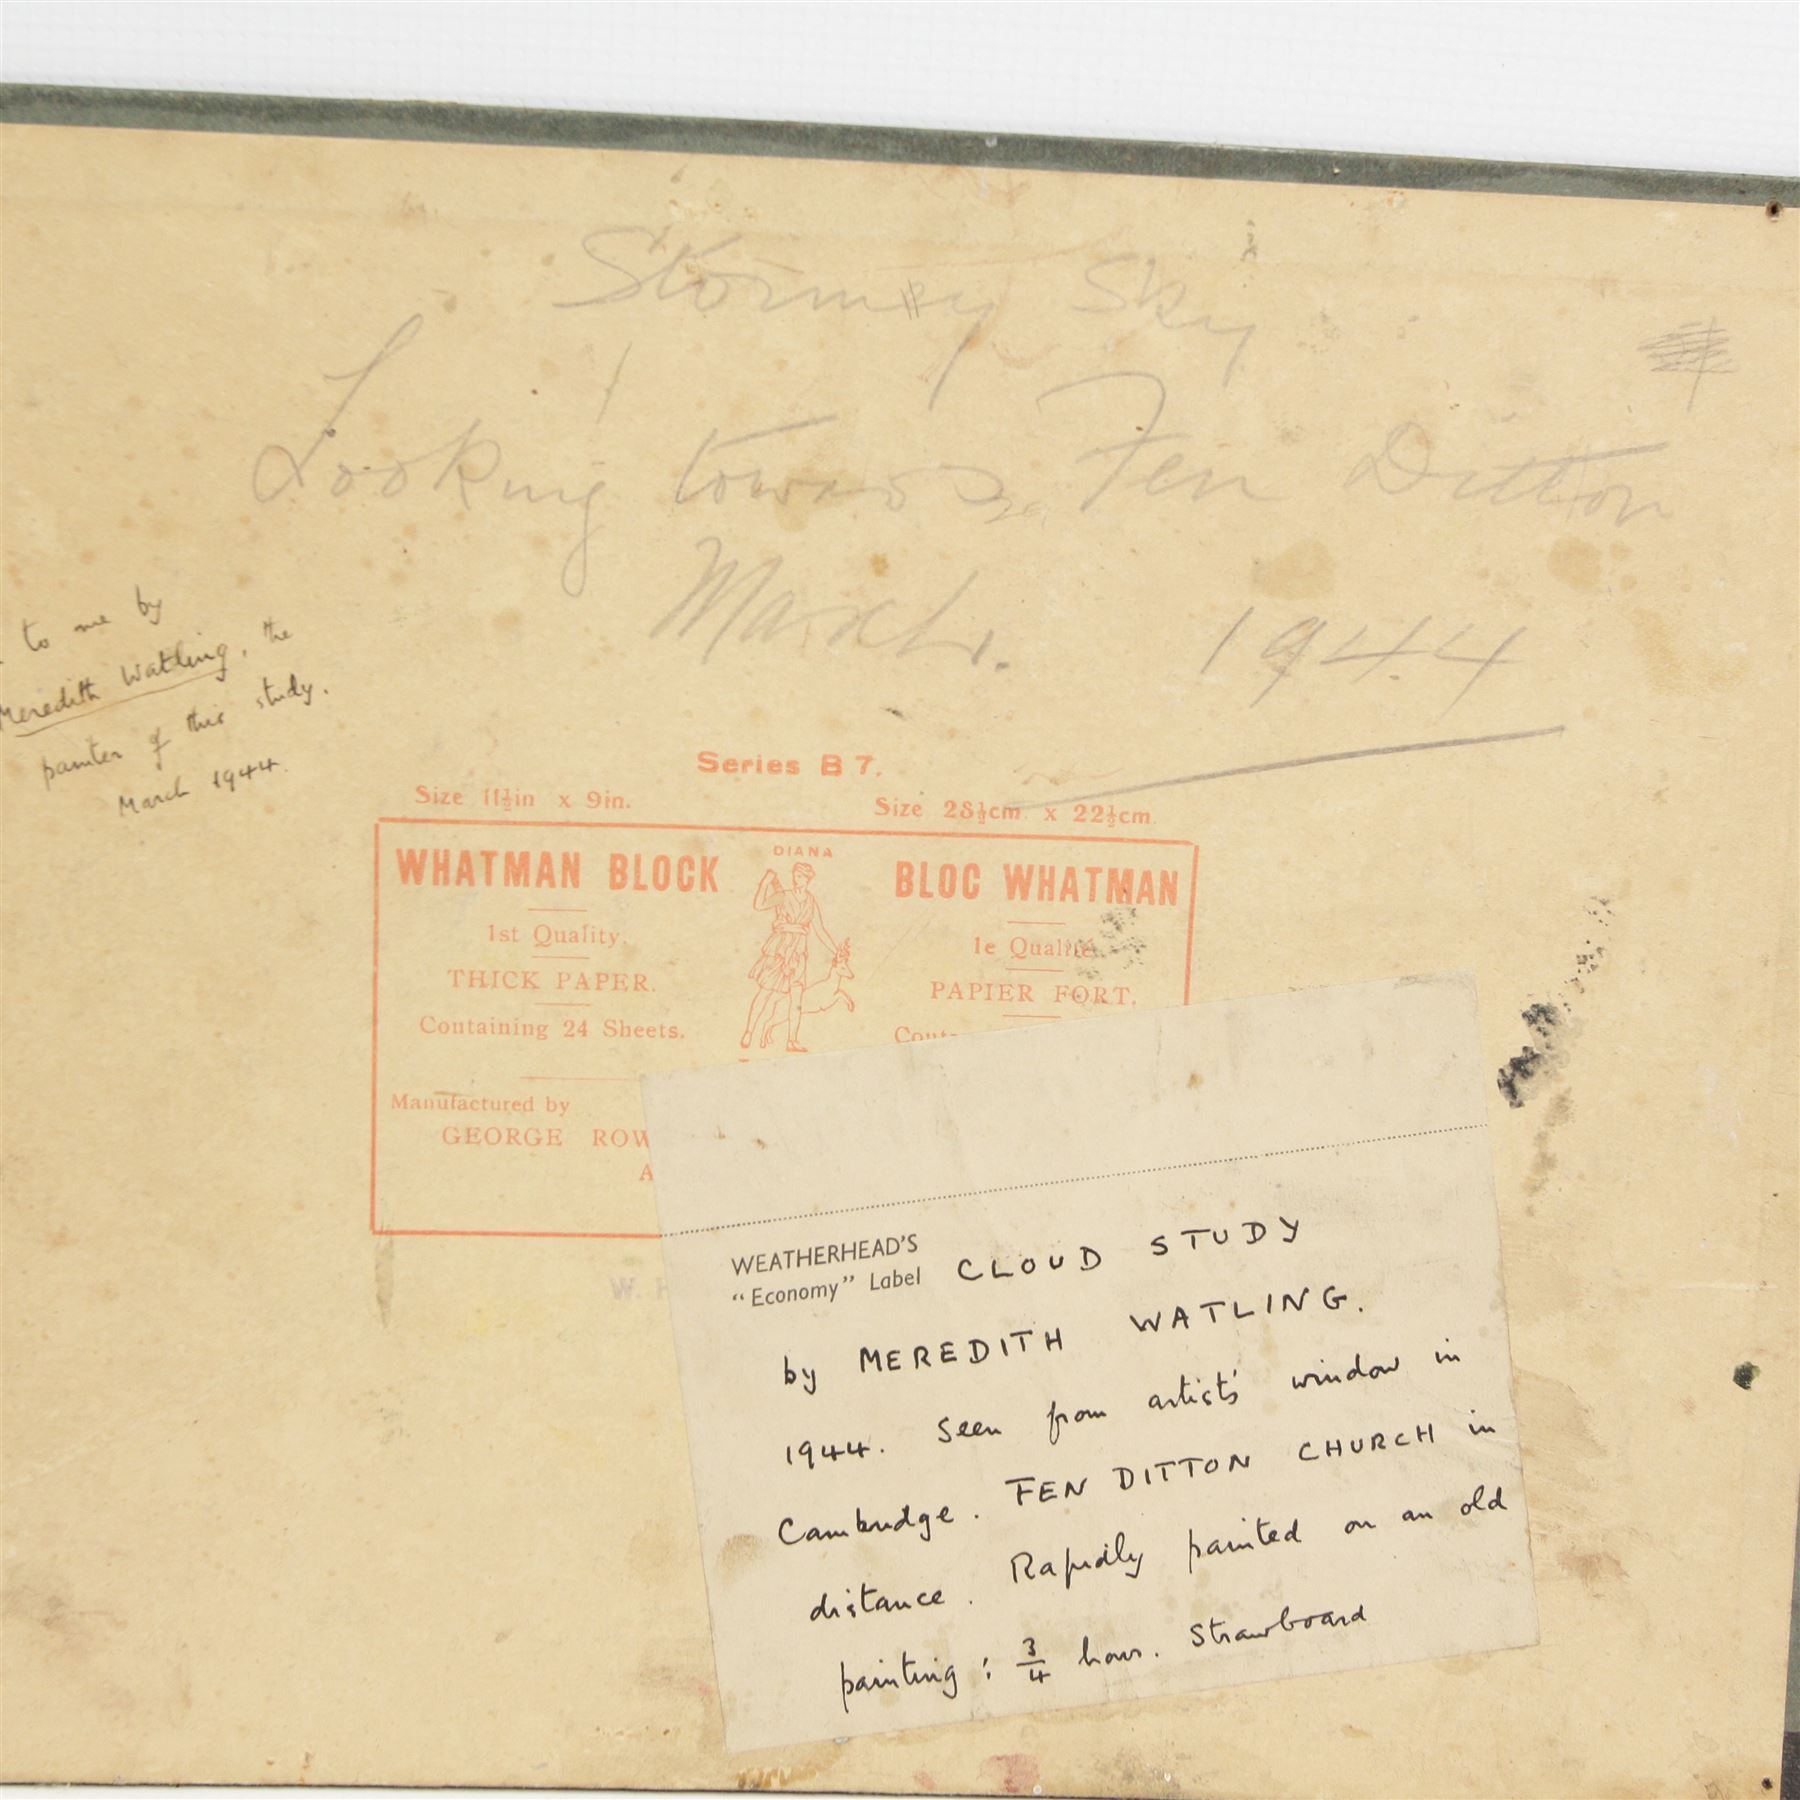 Stormey Sky
Looking towards Fen Ditton
March. 1944
to me by
Meredith Watling, the
painter of this study.
March 1944.
Series B 7.
Size 11½in x 9in.
Size 28½cm x 22½cm.
WHATMAN BLOCK
1st Quality.
THICK PAPER.
Containing 24 Sheets.
DIANA
BLOC WHATMAN
1e Qualité
PAPIER FORT.
Cont
Manufactured by
GEORGE ROW
A
W. H
WEATHERHEAD'S
"Economy" Label
CLOUD STUDY
by MEREDITH WATLING.
1944. Seen from artist's window in
Cambridge. FEN DITTON CHURCH in
distance. Rapidly painted on an old
painting : ¾ hour. Strawboard